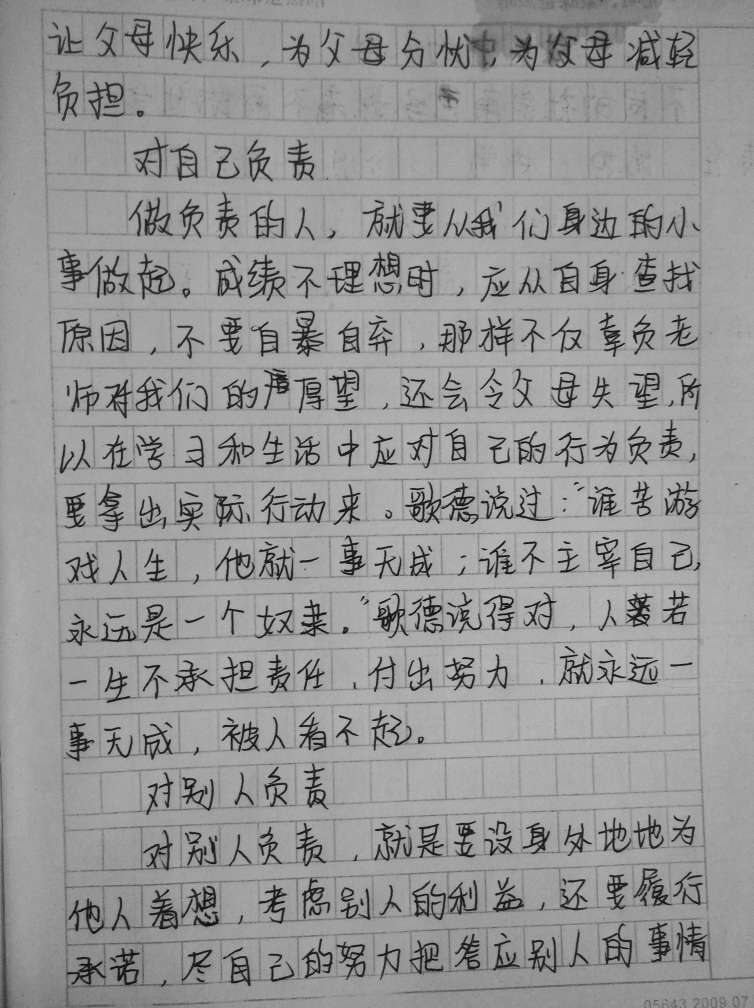 让父母快乐，为父母分忧，为父母减轻
负担。
对自己负责
做负责的人，就要从我们身边的小
事做起。成绩不理想时，应从自身查找
原因，不要自暴自弃，那样不仅辜负老
师对我们的厚望，还会令父母失望，所
以在学习和生活中应对自己的行为负责，
要拿出实际行动来。歌德说过：“谁若游
戏人生，他就一事无成；谁不主宰自己，
永远是一个奴隶。”歌德说得对，人若
一生不承担责任，付出努力，就永远一
事无成，被人看不起。
对别人负责
对别人负责，就是要设身处地地为
他人着想，考虑别人的利益，还要履行
承诺，尽自己的努力把答应别人的事情
05643 2009.07